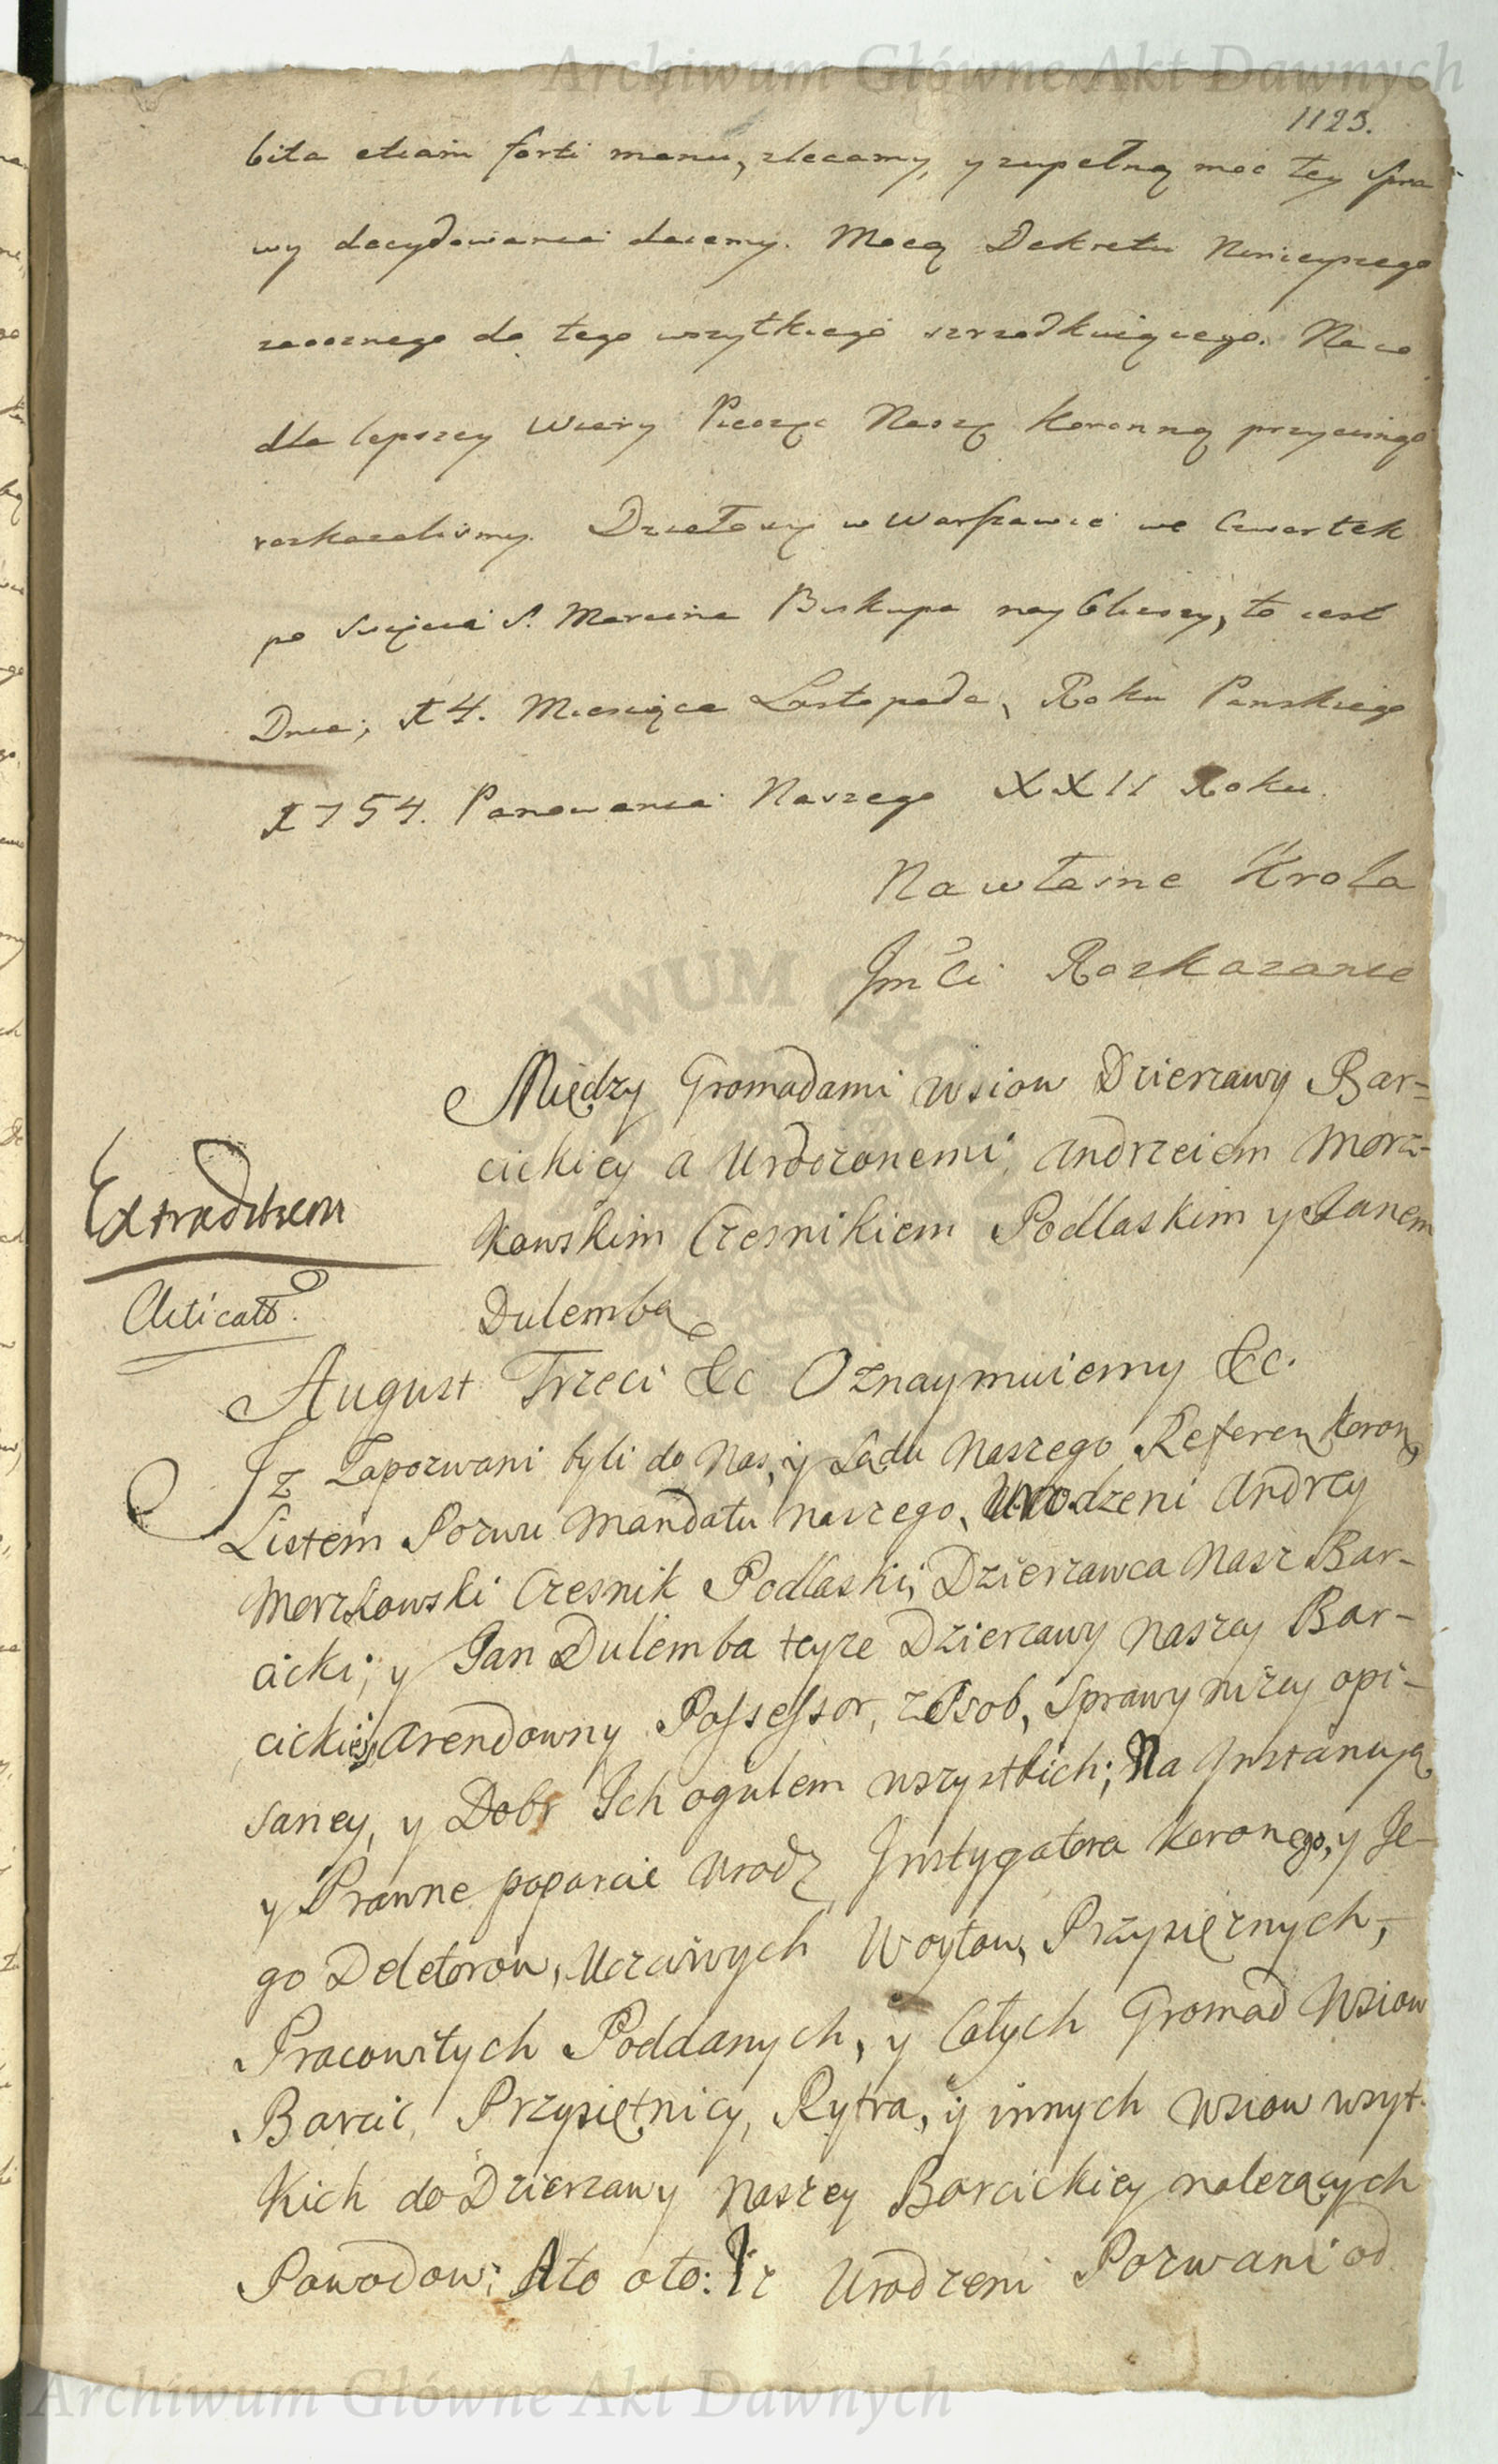 Archiwum Główne Akt Dawnych
1123.
bita etiam forti manu, zlecamy, y zupełną moc tey spra
wy decydowania daiemy. Mocą Dekretu Ninieyszego
zaocznego do tego wszytkiego szrzodkuiącego. Na co
dla lepszey Wiary Pieczęć Naszą Koronną przycisnąć
rozkazalismy. Działo się w Warszawie we Czwartek
po Swięcie S. Marcina Biskupa naybliższy, to iest
Dnia; 14. Miesiąca Listopada, Roku Panskiego
1754. Panowania Naszego XXII Roku.
Na własne Krola
Jmci Rozkazanie
Między Gromadami Wsiow Dzierzawy Bar=
cickiey a Urodzonemi, Andrzeiem Morz-
kowskim Czesnikiem Podlaskim y Janem
Dulemba
Extraditum
Acticatt.
August Trzeci &c Oznaymuiemy &c.
Iz Zapozwani byli do Nas, y Sądu Naszego Referen Koron,
Listem Pozwu Mandatu naszego, Urodzeni Andrzey
Morzkowski Czesnik Podlaski, Dzierzawca Nasz Bar-
cicki, y Jan Dulemba teyze Dzierzawy naszey Bar-
cickiey Arendowny Possessor, z Osob, Sprawy nizey opi-
saney, y Dobr Ich ogułem wszystkich; Na Instancyą
y Prawne poparcie Urodz Instygatora Koronego, y Je-
go Deletorow, Uczciwych Woytow, Przysięznych,
Pracowitych Poddanych, y Całych Gromad Wsiow
Barcic, Przysietnicy, Rytra, y innych Wsiow wszyt-
kich do Dzierzawy Naszey Barcickiey nalezących
Powodow; Ato oto: Iz Urodzeni Pozwani od
Archiwum Główne Akt Dawnych